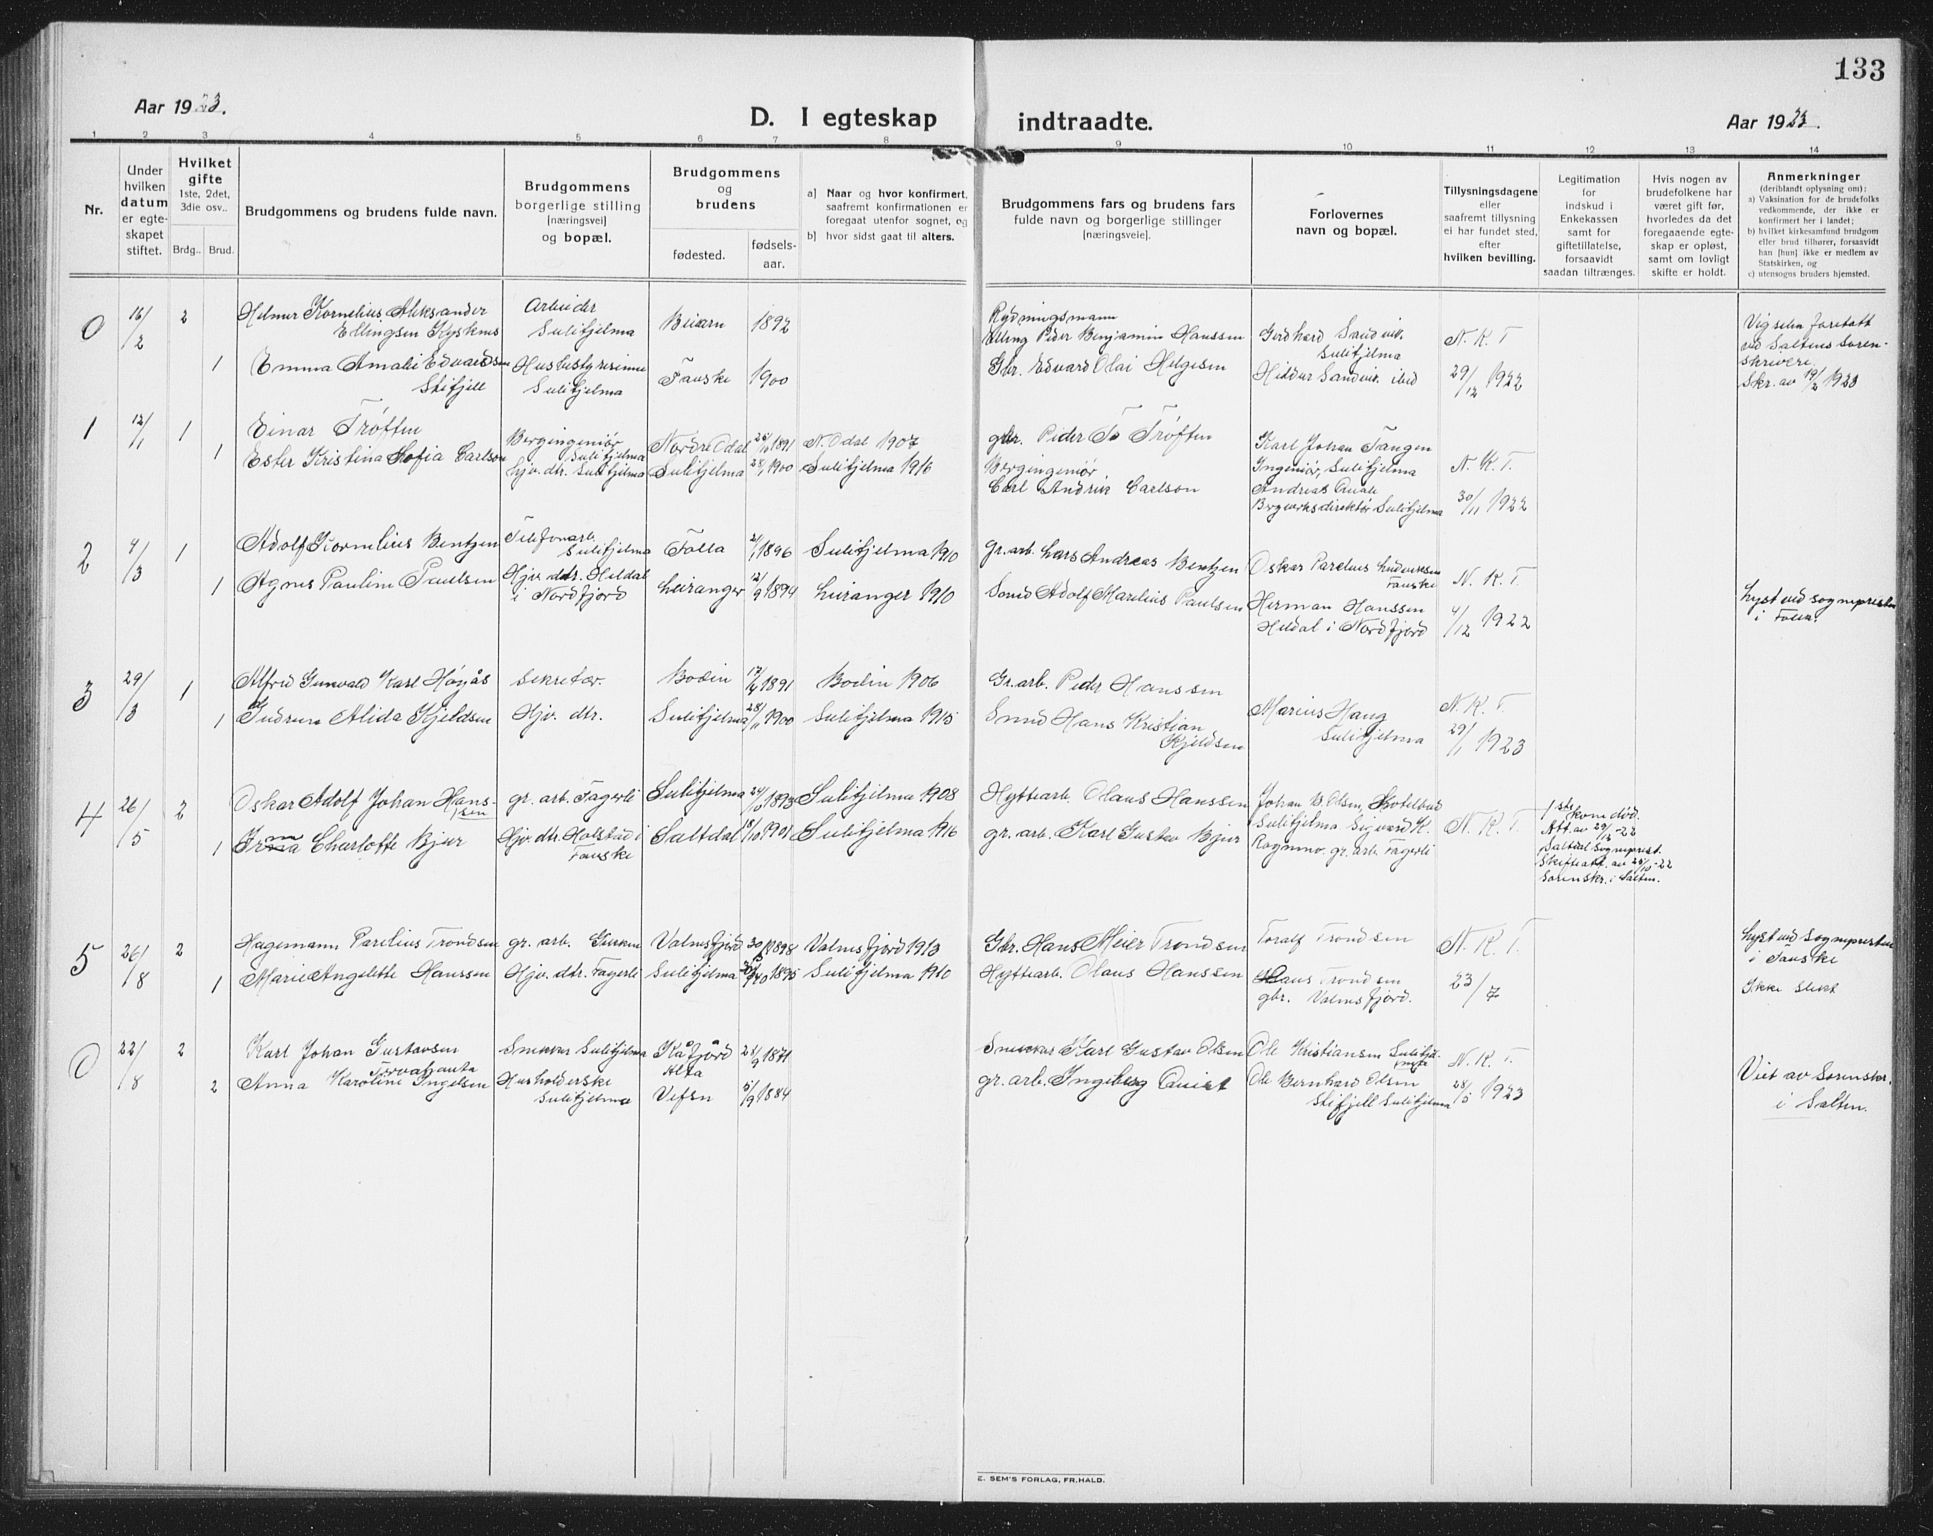 133
Aar 1923.
D. I egteskap indtraadte.
Aar 1923.
1 2 3 4 5 6 7 8 9 10 11 12 13 14
Nr.
Under
hvilken
datum
er egte-
skapet
stiftet.
Hvilket
gifte
1ste, 2det,
3die osv..
Brdg.. Brud.
Brudgommens og brudens fulde navn.
Brudgommens
borgerlige stilling
[næringsvei]
og bopæl.
Brudgommens
og
brudens
fødested.
fødsels-
aar.
a] Naar og hvor konfirmert,
saafremt konfirmationen er
foregaat utenfor sognet, og
b) hvor sidst gaat til alters.
Brudgommens fars og brudens fars
fulde navn og borgerlige stillinger
[næringsveie].
Forlovernes
navn og bopæl.
Tillysningsdagene
eller
saafremt tillysning
ei har fundet sted,
efter
hvilken bevilling.
Legitimation
for
indskud i
Enkekassen
samt for
giftetillatelse,
forsaavidt
saadan tiltrænges.
Hvis nogen av
brudefolkene har
været gift før,
hvorledes da det
foregaaende egte-
skap er opløst,
samt om lovligt
skifte er holdt.
Anmerkninger
(deriblandt oplysning om):
a) Vaksination for de brudefolks
vedkommende, der ikke er
konfirmert her i landet;
b) hvilket kirkesamfund brudgom
eller brud tilhører, forsaavidt
han [hun] ikke er medlem av
Statskirken, og
c) utensogns bruders hjemsted.
0 16/2 2 Hilmar Kornelius Aleksander
Ellingsen Kysknes
Arbeider
Sulitjelma
Beiarn 1892
Rydningsmann
Elling Peder Benjamin Hanssen
Gerhard Sandvik
Sulitjelma
N. K. T
1 Emma Amalie Edvardsen
Stifjell
Husbestyrerinne
Sulitjelma
Fauske 1900
Gbr. Edvard Olai Helgesen
Hildur Sandvik ibid
29/12 1922
Vigselen foretatt
ved Saltens Soren-
skriveri
Skr. av 19/2 1923
1 12/1 1 Einar Trøften
Bergingeniør
Sulitjelma
Nordre Odal 26/11 1891 N. Odal 1907
gbr. Peder To Trøften
Karl Johan Tangen
Ingeniør, Sulitjelma
N. K. T.
1 Ester Kristina Sofia Carlson
hjv. dtr. Sulitjelma
Sulitjelma 28/1 1900 Sulitjelma 1916
Bergingeniør
Carl Andrik Carlson
Andreas Quale
Bergverksdirektør Sulitjelma
30/11 1922
2 4/3 1 Adolf Kornelius Bentzen
Telefonarb.
Sulitjelma
Folla 2/1 1896 Sulitjelma 1910
gr. arb. Lars Andreas Bentzen
Oskar Parelius Ludviksen
Fauske
N. K. T
1 Agnes Pauline Paulsen
Hjv. dtr. Hildal
i Nordfjord
Leiranger 12/9 1894 Leiranger 1910
Smed Adolf Marelius Paulsen
Herman Hanssen
Hildal i Nordfjord
4/12 1922
Lyst ved sogmpresten
i Folla.
3 29/3 1 Alfred Gunvald Karl Høgås
Sekretær.
Bodin 17/4 1891 Bodin 1906
Gr. arb. Peder Hanssen
Marius Haug
Sulitjelma
N. K. T
1 Gudrun Alida Kjeldsen
Hjv. dtr.
Sulitjelma 28/11 1900 Sulitjelma 1915
Smed Hans Kristian
Kjeldsen
29/1 1923
4 26/5 2 Oskar Adolf Johan Hans-
sen
gr. arb. Fagerli
Sulitjelma 24/10 1893 Sulitjelma 1908
Hyttearb. Olaus Hanssen
Johan B. Olsen,
Sulitjelma Sigvard K.
Ragnmo. gr. arb. Fagerli
N. K. T.
1 Charlotte Bjur
Hjv. dtr. Holstad i
Fauske
Saltdal 18/10 1901 Sulitjelma 1916
gr. arb. Karl Gustav Bjur
1ste kone død.
Att. av 29/12-22
Saltdal Sogneprest.
Skifteatt. av 28/10-22
Sorenskr. i Salten.
5 26/8 2 Hagemann Parelius Trondsen
gr. arb. Giken
Valnesfjord 30/1 1898 Valnesfjord 1913
Gbr. Hans Meier Trondsen
Toralf Trondsen
N. K. T.
1 Marie Angelette Hanssen
Hjv. dtr. Fagerli
Sulitjelma 1895 Sulitjelma 1910
Hyttearb. Olaus Hanssen
Hans Trondsen
gbr. Valnesfjord.
23/7
Lyst ved Sognepresten
i Fauske
Ikke slekt
0 22/8 2 Karl Johan Gustavsen
Tervahauta
Snekker Sulitjelma
Kåfjord
Alta
28/9 1871
Snekker Karl Gustav Olsen
Ole Kristiansen Sulitjel-
N. K. T.
2 Anna Karoline Ingelsen
Husholderske
Sulitjelma
Vefsn 5/9 1884
gr. arb. Ingeberg Quist
Ole Bernhard Olsen
Stifjell Sulitjelma
28/5 1923
Viet av Sorenskr.
i Salten.
E. SEM'S FORLAG, FR.HALD.